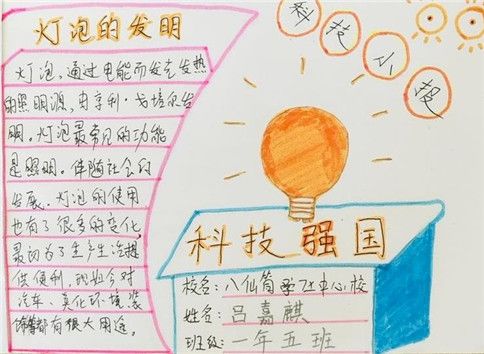 灯泡的发明
灯泡，通过电能而发光发热
的照明源，由亨利·戈培尔发
明。灯泡最常见的功能
是照明。伴随社会的
发展，灯泡的使用
也有了很多的变化，
最初为了生产生活提
供便利，现如今对
汽车、美化环境、装
饰等都有很大用途。
科技小报
科技强国
校名：八仙筒中心校
姓名：吕嘉麒
班级：一年五班